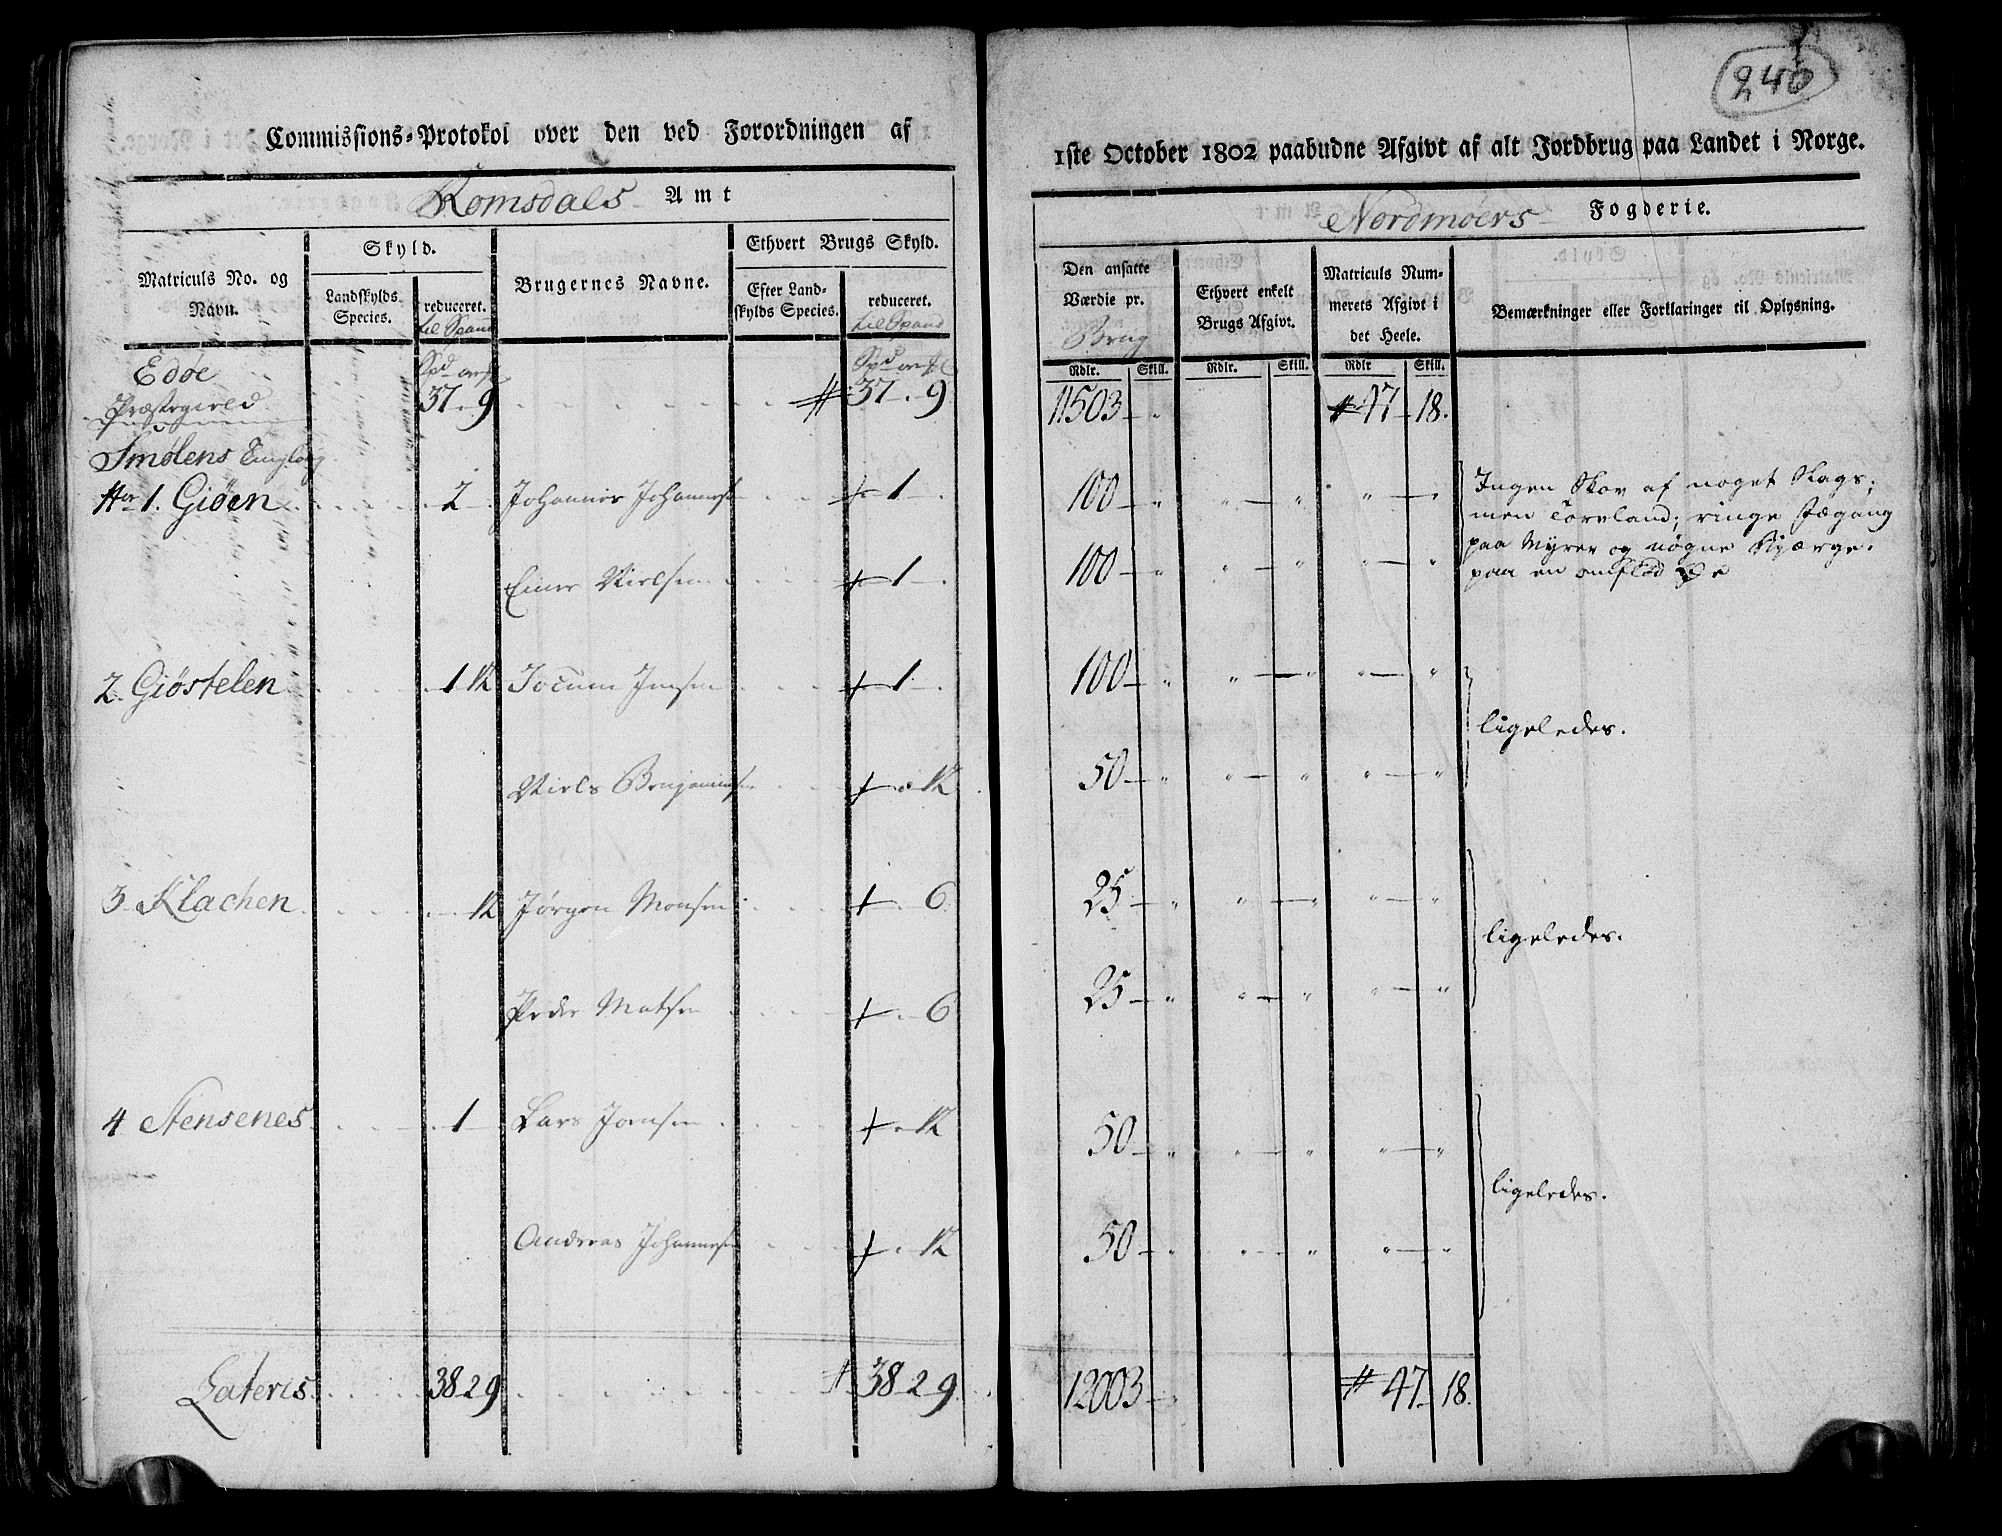 Commissions-Protokol over den ved Forordningen af
Romsdals Amt
Matriculs No. og Navn.
Skyld.
Landskylds Species.
reduceret.
til Spand
Brugernes Navne.
Ethvert Brugs Skyld.
Efter Landskylds Species.
reduceret.
til Spand
Edøe
Præstegield 37 - 9 # 37 - 9
Smølens Tinglaug
No 1. Giøen 2 Johannes Johannes 1
Einer Nielsen 1
2. Giøstelen 1 12 Jocum Jensen 1
Niels Benjaminsen 12
3 Klachen 12 Jørgen Monsen 6
Peder Matsen 6
4 Stensenes 1 Lars Jonsen 12
Andreas Johannesen 12
Lateris 38 2 9 # 38 2 9
240
1ste October 1802 paabudne Afgivt af alt Jordbrug paa Landet i Norge.
Nordmøers Fogderie.
Den ansatte Værdie pr.
Brug
Ethvert enkelt Brugs Afgivt.
Matriculs Nummerets Afgivt i det Heele.
Bemærkninger eller Forklaringer til Oplysning.
Rdlr. Skill. Rdlr. Skill. Rdlr Skill.
11503 - " # 47 - 18.
100 - " " - " " - " Ingen Skov af noget Slags;
men Torvland; ringe Fægang
100 - " " - " " - " paa Myrer og nøgne Bjærge.
paa en omflød Øe
100 - " " - " " - "
ligeledes.
50 - " " - " " - "
25 - " " - " " - "
ligeledes.
25 - " " - " " - "
50 - " " - " " - "
ligeledes.
50 - " " - " " - "
12003 - " # 47 - 18.